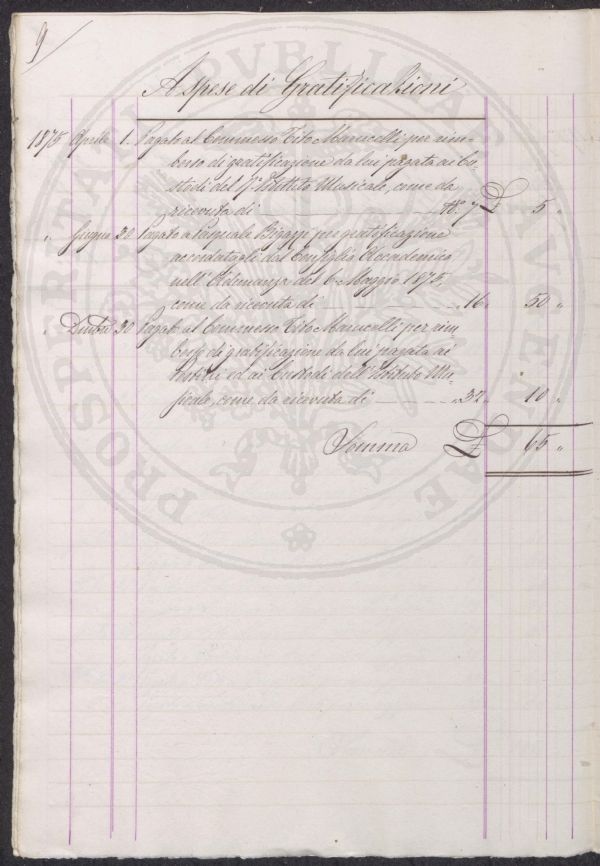 9
A spese di Gratificazioni
1875 Aprile 1. Pagato al Commesso Tito Marucelli per rim-
borso di gratificazione da lui pagata ai Cu-
stodi del R.° Istituto Musicale, come da
ricevuta di N.° 7 £ 5 "
" Giugno 30 Pagato a Pasquale Bigazzi per gratificazione
accordatagli dal Consiglio Accademico
nell'Adunanza del 6 Maggio 1875,
come da ricevuta di " 16 " 50 "
" Dicembre 30 Pagato al Commesso Tito Marucelli per rim
borso di gratificazione da lui pagata ai
ed ai Custodi dell'Istituto Mu-
sicale, come da ricevuta di " 32 " 10 "
Somma £ 65 "
PROSPERITATI PVBLICAE AVGENDAE